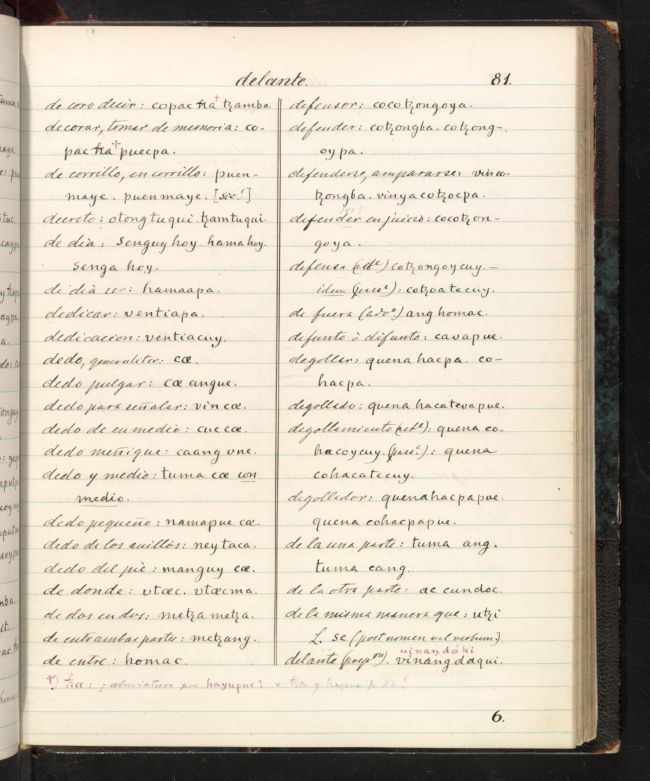 delante. 81.
de coro decir: copac ħa† tzamba
decorar, tomar de memoria: co-
pac ħa† puecpa.
de corrillo, en corrillo: puen-
maye. puenmaye. [sic!]
decreto: otongtuqui. tzamtuqui.
de dia: senguy hoy. hama hoy.
senga hoy.
de dia ser: hamaapa.
dedicar: ventiapa.
dedicacion: ventiacuy.
dedo, generaliter: cœ.
dedo pulgar: cœ angue.
dedo para señalar: vin cœ.
dedo de en medio: cuc cœ.
dedo meñique: caang une.
dedo y medio: tuma cœ con
medio.
dedo pequeño: namapue cœ.
dedo de los anillos: ney taca.
dedo del piè: manguy cœ.
de donde: utœc. utœcma.
de dos en dos: metza metza.
de entrambas partes: metzang.
de entre: homac.
defensor: cocotzongoya.
defender: cotzongba. cotzong-
oy pa.
defenderse, ampararse: vinco-
tzongba. vinya cotzocpa.
defender en juicio: cocotzon-
goya.
defensa (actᵉ) cotzongoycuy. –
idem (passᵉ): cotzoatecuy.
de fuera (advᵒ) ang homac.
defunto ò difunto: caoapue.
degollar: quena hacpa. co-
hacpa.
degollado: quena hacatevapue.
degollamiento (actᵉ): quena co-
hacoycuy. (passᵉ): quena
cohacatecuy.
degollador: quenahacpapue.
quena cohacpapue.
de la una parte: tuma ang.
tuma cang.
de la otra parte: ac cundoc.
de la misma manera que: utzi
L. se (post nomen vel verbum)
vinandóki
delante (prepᵒⁿ). vinang daqui.
†) ħa: ¿abreviatura por hayupue?
6.